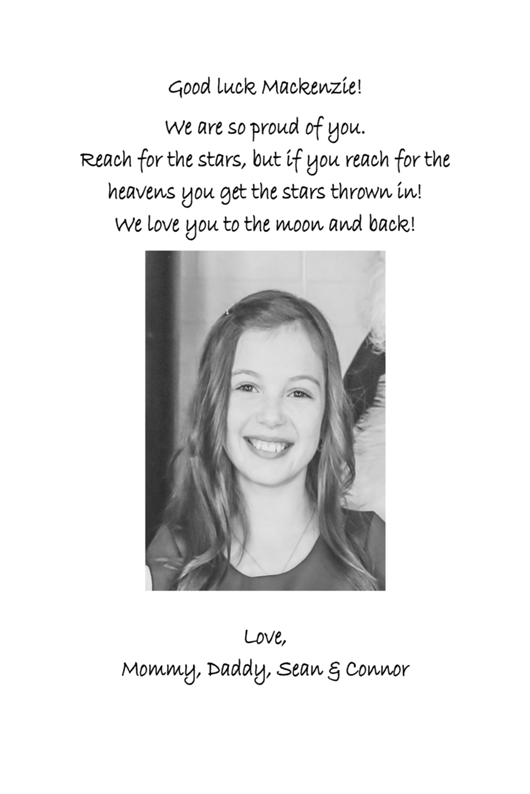 Good luck Mackenzie!
We are so proud of you.
Reach for the stars, but if you reach for the
heavens you get the stars thrown in!
We love you to the moon and back!
Love,
Mommy, Daddy, Sean & Connor